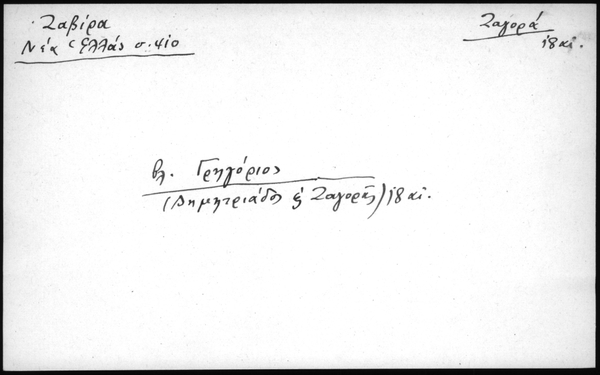 Ζαβίρα
Νέα Ἑλλάς σ. 410
Ζαγορά
18 αἰ.
βλ. Γρηγόριος
(Δημητριάδος & Ζαγορᾶς) 18 αἰ.